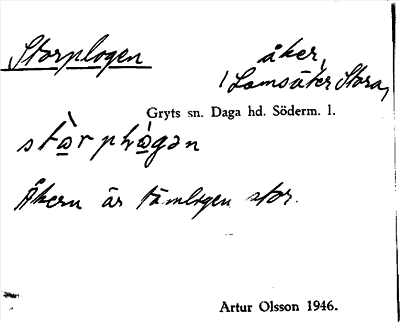 Storplogen
åker,
Lamsäter Stora,
Gryts sn. Daga hd. Söderm. l.
Åkern är tämligen stor.
Artur Olsson 1946.